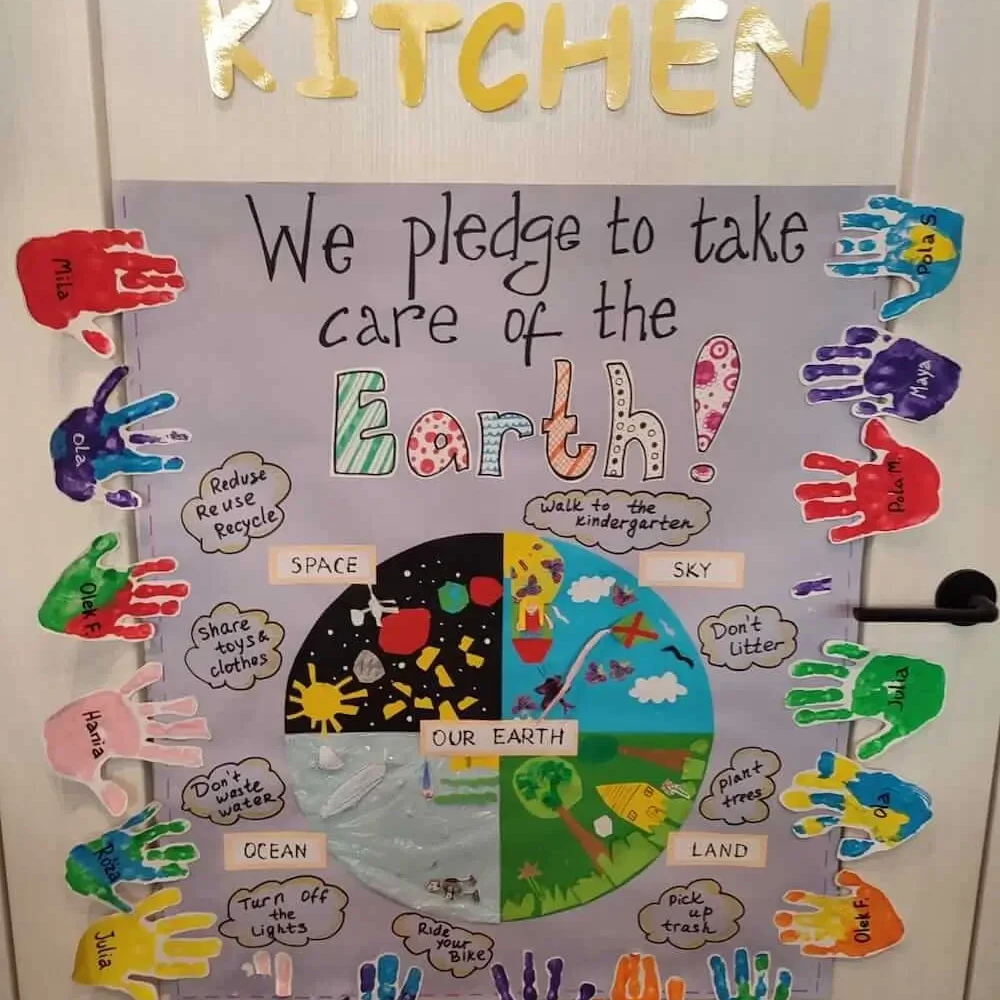 KITCHEN
We pledge to take
care of the
Earth!
Reduse
Reuse
Recycle
Walk to the
kindergarten
SPACE
SKY
Share
toys &
clothes
Don't
litter
OUR EARTH
Don't
waste
water
plant
trees
OCEAN
LAND
Turn off
the
Lights
Ride
your
Bike
Pick
up
trash
Mila
Ola
Olek F.
Hania
Róża
Julia
Pola S
Maya
Pola M.
Julia
Ola
Olek F.